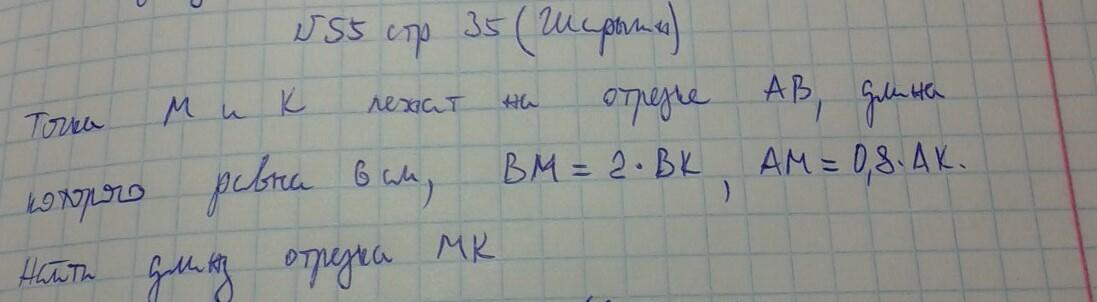 №55 стр 35 (Ширыти)
Точки М и К лежат на отрезке АВ, длина
которого равна 6 см, ВМ = 2·ВК, АМ = 0,8·АК.
Найти длину отрезка МК